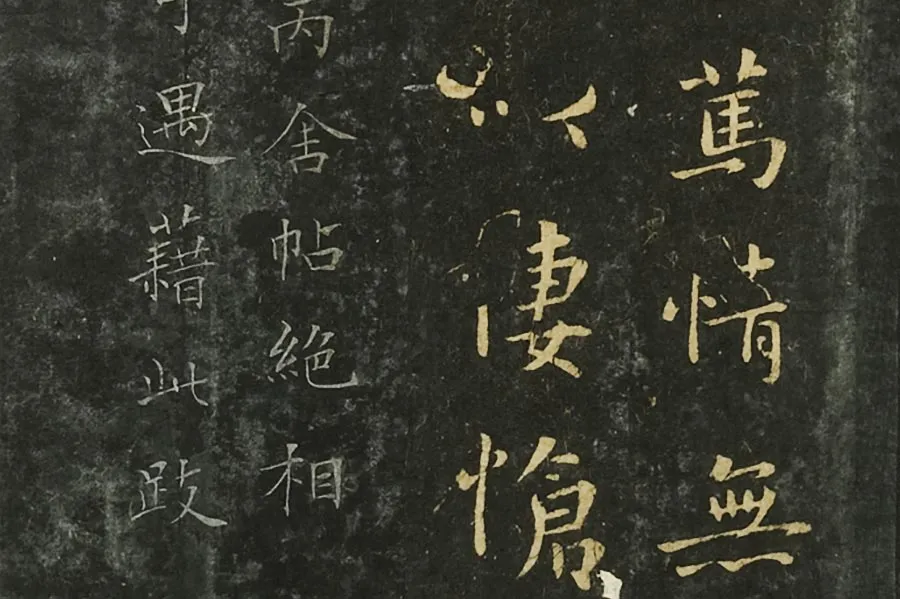 篤情無
悽愴
丙舍帖絕相
遇藉此跋